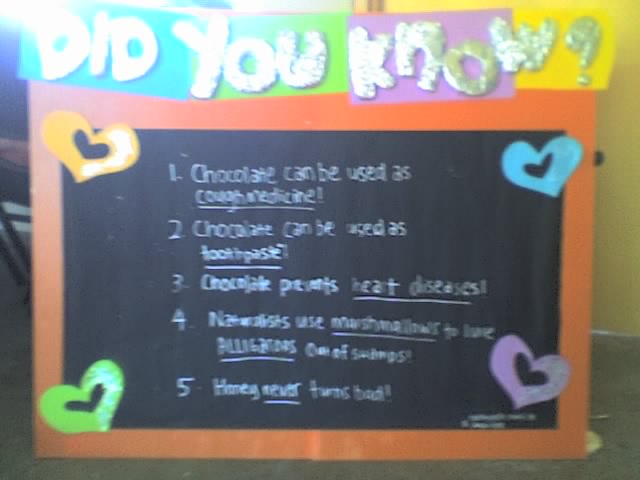 DID YOU KNOW?
1. Chocolate can be used as
cough medicine!
2. Chocolate can be used as
toothpaste!
3. Chocolate prevents heart diseases!
4. Naturalists use marshmallows to lure
ALLIGATORS out of swamps!
5. Honey never turns bad!